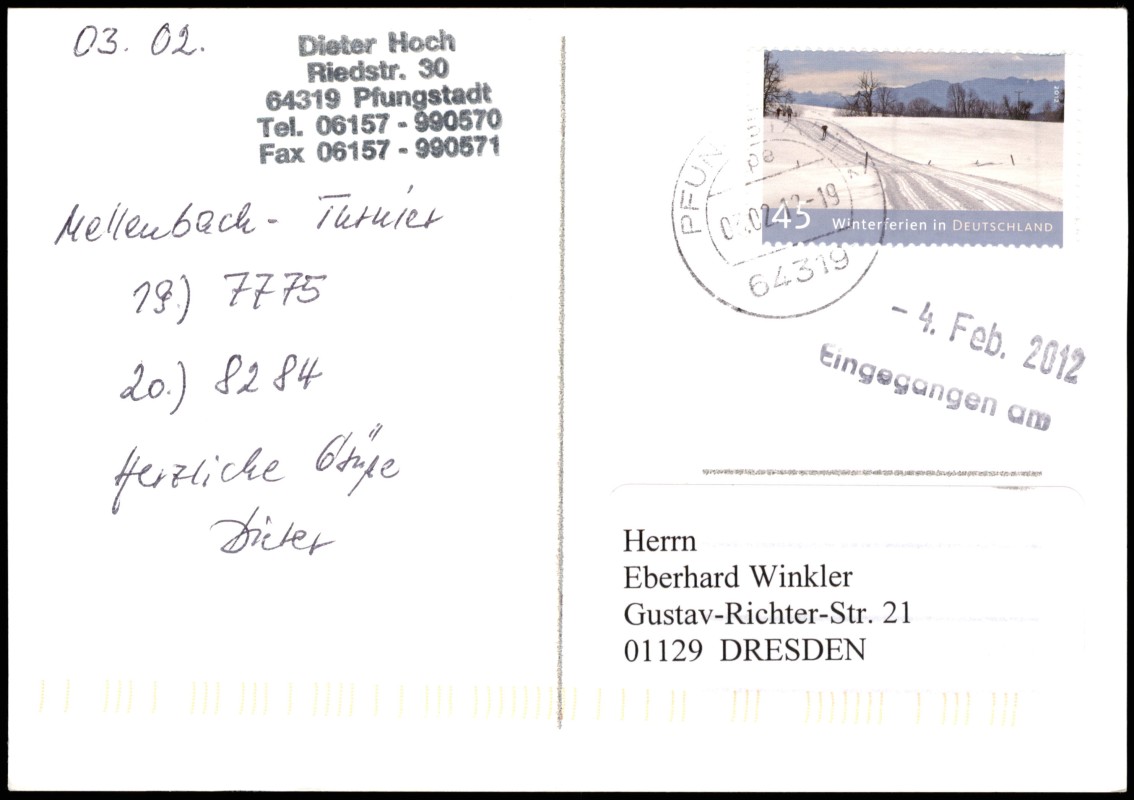 03. 02.
Dieter Hoch
Riedstr. 30
64319 Pfungstadt
Tel. 06157 - 990570
Fax 06157 - 990571
Mellenbach - Turnier
19.) 7775
20.) 8284
Herzliche Grüße
Dieter
2012
45 Winterferien in DEUTSCHLAND
PFUN
.02.12-19
64319
- 4. Feb. 2012
Eingegangen am
Herrn
Eberhard Winkler
Gustav-Richter-Str. 21
01129 DRESDEN